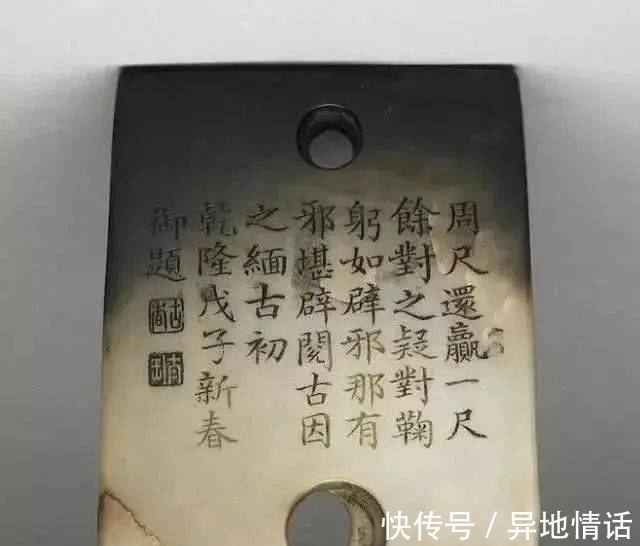 周尺還贏一尺
餘對之疑對鞠
躬如辟邪那有
邪堪辟閱古因
之緬古初
乾隆戊子新春
御題
快传号 / 异地情话